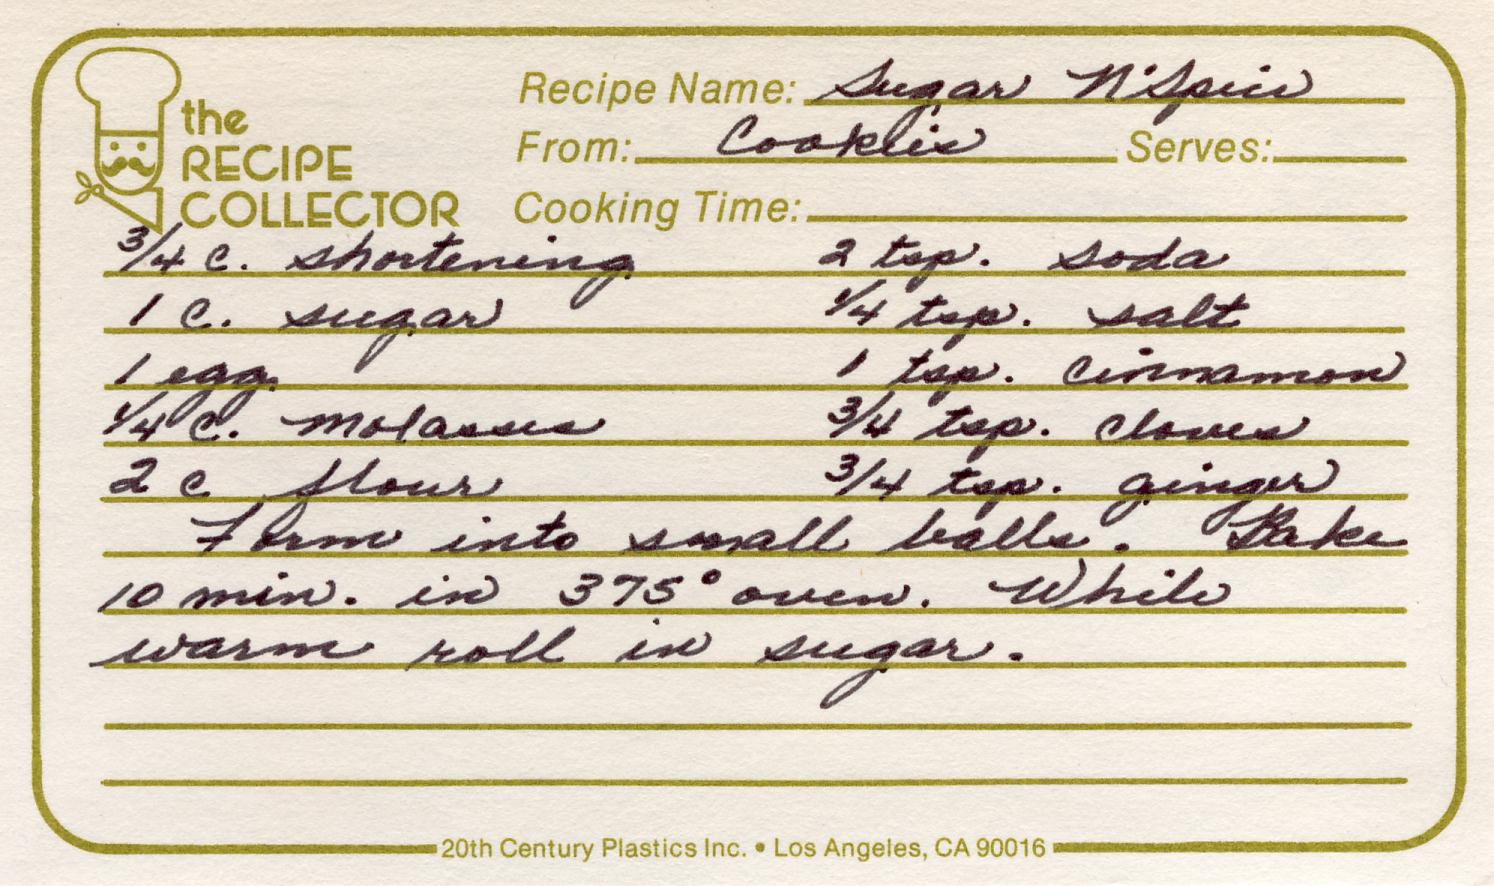 the
RECIPE
COLLECTOR
Recipe Name: Sugar N' Spice
From: Cookies Serves:
Cooking Time:
3/4 c. shortening 2 tsp. soda
1 c. sugar 1/4 tsp. salt
1 egg 1 tsp. cinnamon
1/4 c. Molasses 3/4 tsp. cloves
2 c flour 3/4 tsp. ginger
Form into small balls. Bake
10 min. in 375° oven. While
warm roll in sugar.
20th Century Plastics Inc. • Los Angeles, CA 90016